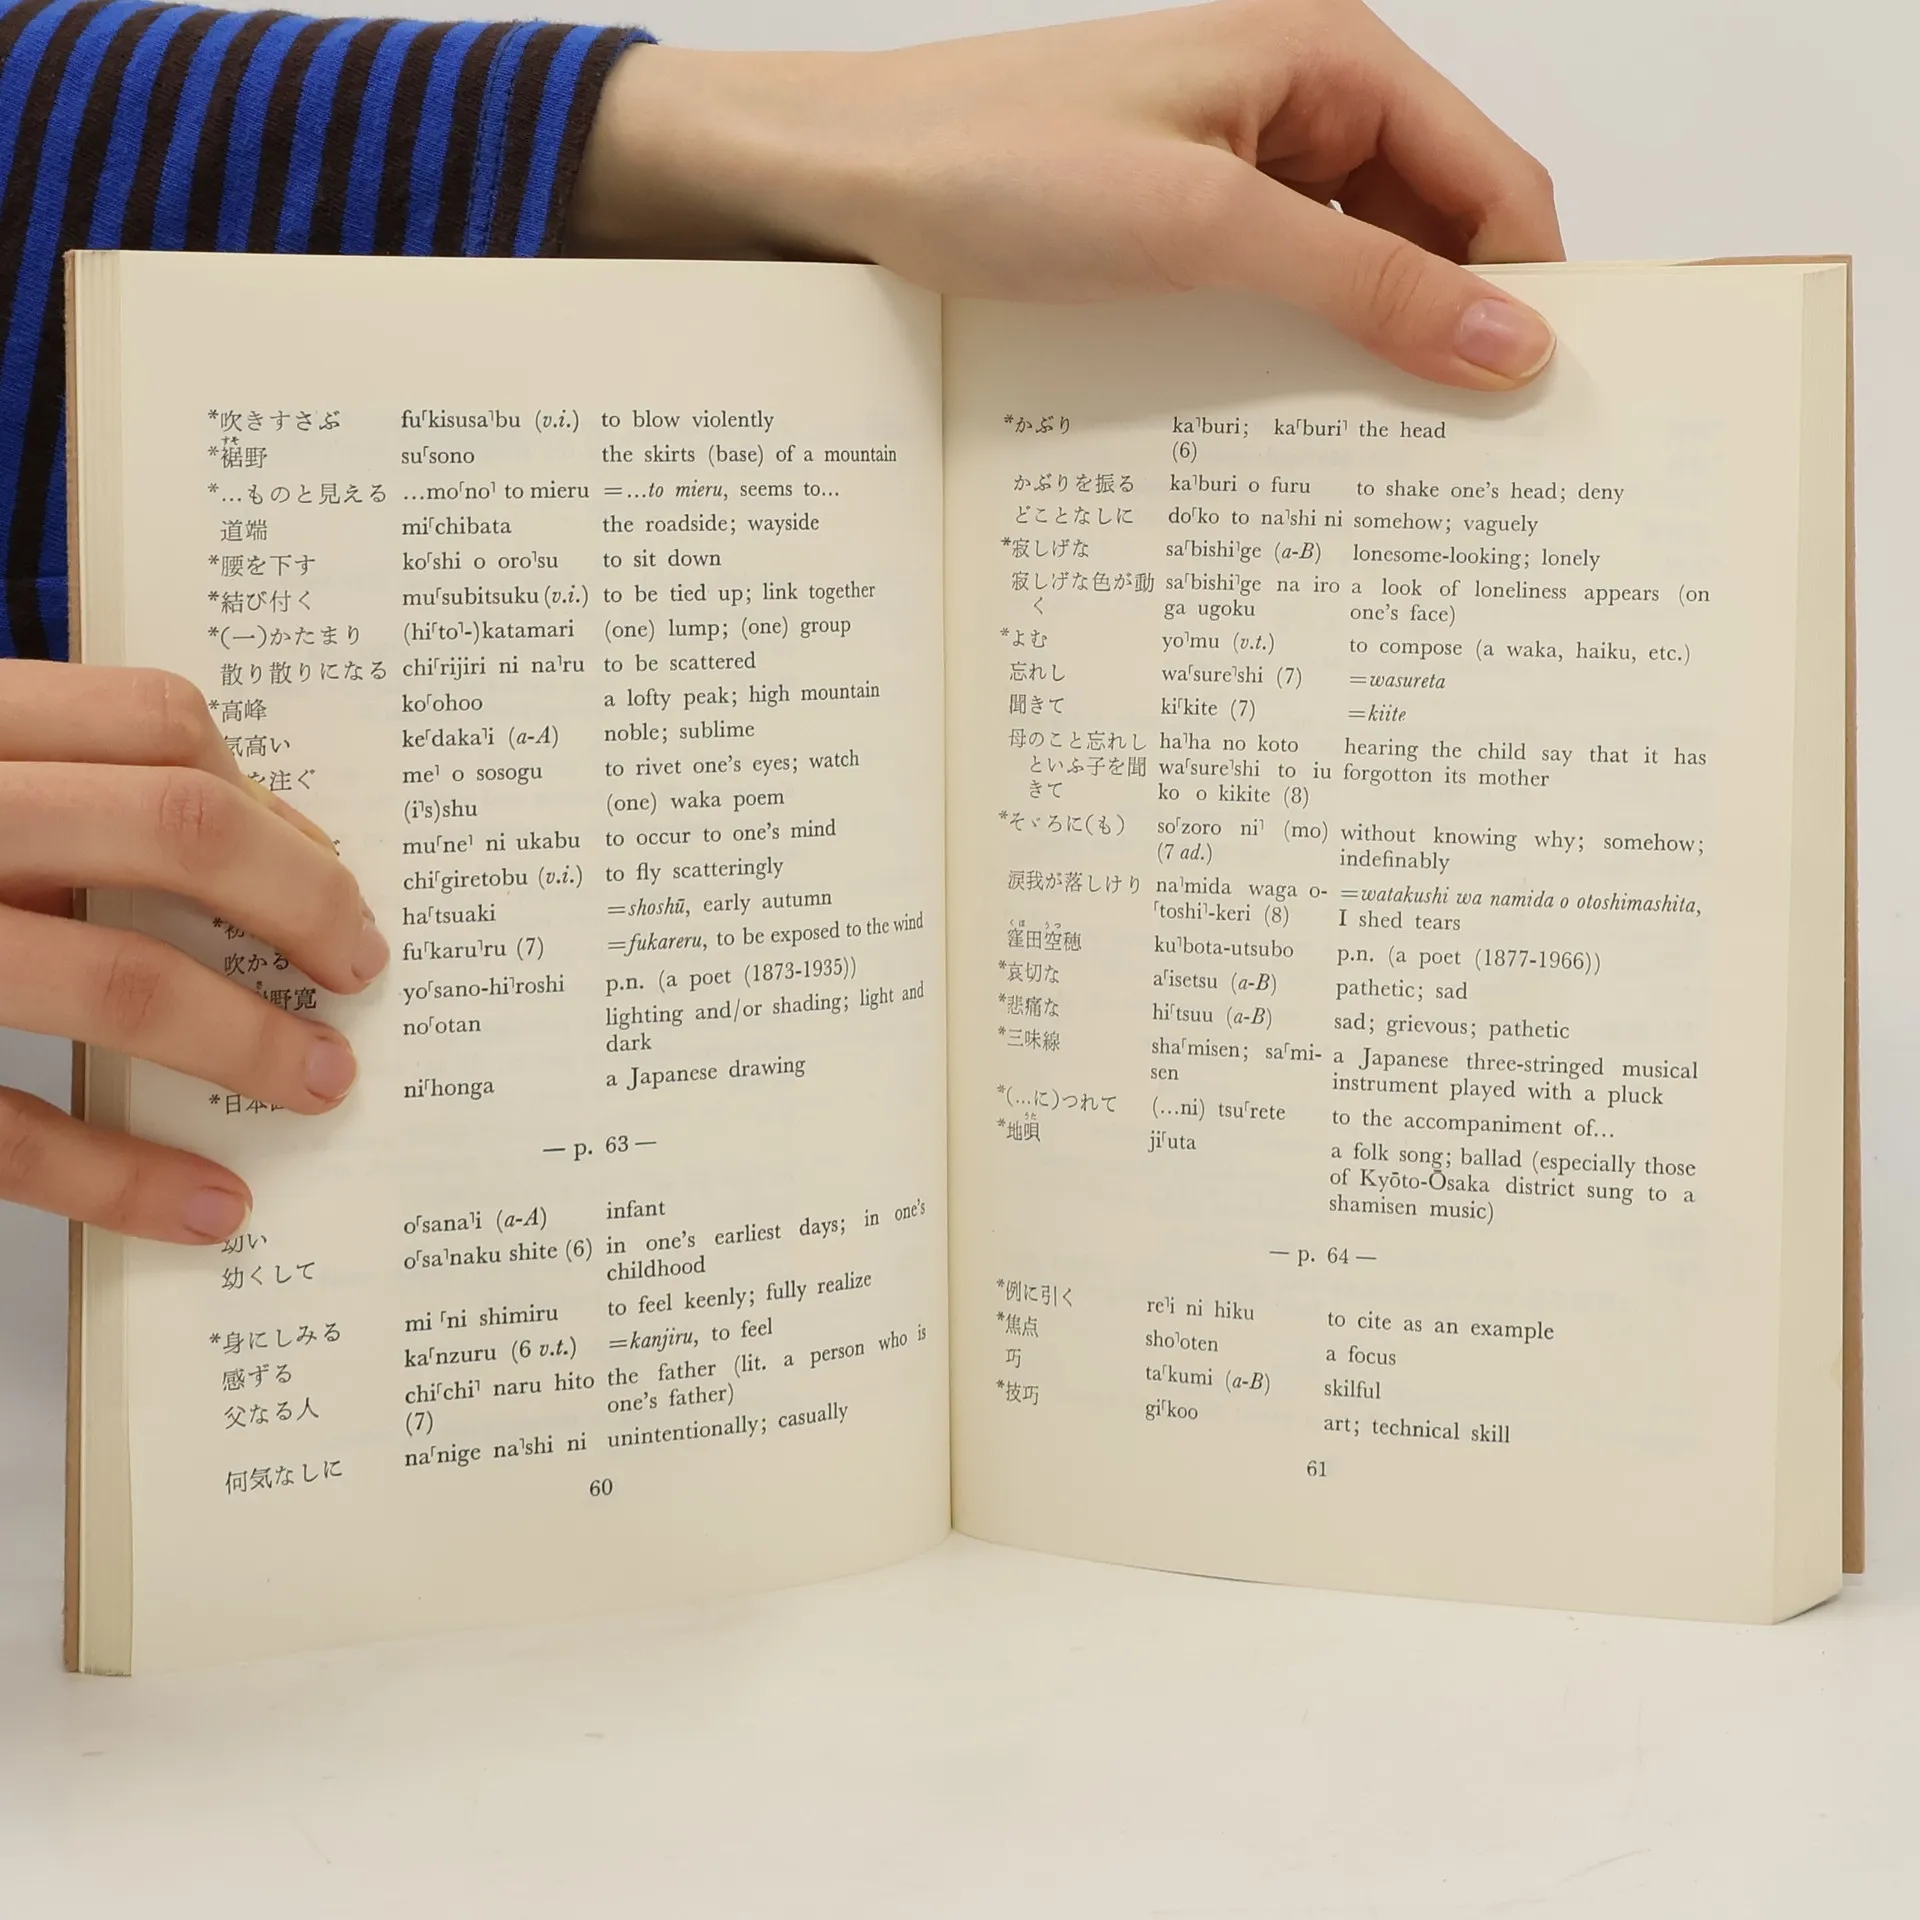 *吹きすさぶ fu｢kisusa｣bu (v.i.) to blow violently
*裾野 su｢sono the skirts (base) of a mountain
すそ
*…ものと見える …mo｢no｣ to mieru =…to mieru, seems to…
道端 mi｢chibata the roadside; wayside
*腰を下す ko｢shi o oro｣su to sit down
*結び付く mu｢subitsuku (v.i.) to be tied up; link together
*(一)かたまり (hi｢to｣-)katamari (one) lump; (one) group
散り散りになる chi｢rijiri ni na｣ru to be scattered
*高峰 ko｢ohoo a lofty peak; high mountain
気高い ke｢daka｣i (a-A) noble; sublime
を注ぐ me｣ o sosogu to rivet one's eyes; watch
(i｣s)shu (one) waka poem
mu｢ne｣ ni ukabu to occur to one's mind
chi｢giretobu (v.i.) to fly scatteringly
*初 ha｢tsuaki =shoshū, early autumn
吹かる fu｢karu｢ru (7) =fukareru, to be exposed to the wind
野寛 yo｢sano-hi｣roshi p.n. (a poet (1873-1935))
no｢otan lighting and/or shading; light and
dark
*日本 ni｢honga a Japanese drawing
— p. 63 —
幼い o｢sana｣i (a-A) infant
幼くして o｢sa｣naku shite (6) in one's earliest days; in one's
childhood
*身にしみる mi ｢ni shimiru to feel keenly; fully realize
感ずる ka｢nzuru (6 v.t.) =kanjiru, to feel
父なる人 chi｢chi｣ naru hito the father (lit. a person who is
(7) one's father)
何気なしに na｢nige na｣shi ni unintentionally; casually
60
*かぶり ka｣buri; ka｢buri｣ the head
(6)
かぶりを振る ka｣buri o furu to shake one's head; deny
どことなしに do｢ko to na｣shi ni somehow; vaguely
*寂しげな sa｢bishi｣ge (a-B) lonesome-looking; lonely
寂しげな色が動 sa｢bishi｣ge na iro a look of loneliness appears (on
く ga ugoku one's face)
*よむ yo｣mu (v.t.) to compose (a waka, haiku, etc.)
忘れし wa｢sure｣shi (7) =wasureta
聞きて ki｢kite (7) =kiite
母のこと忘れし ha｣ha no koto hearing the child say that it has
といふ子を聞 wa｢sure｣shi to iu forgotton its mother
きて ko o kikite (8)
*そゞろに(も) so｢zoro ni｣ (mo) without knowing why; somehow;
(7 ad.) indefinably
涙我が落しけり na｣mida waga o- =watakushi wa namida o otoshimashita,
｢toshi｣-keri (8) I shed tears
くぼ うつ
窪田空穂 ku｣bota-utsubo p.n. (a poet (1877-1966))
*哀切な a｢isetsu (a-B) pathetic; sad
*悲痛な hi｢tsuu (a-B) sad; grievous; pathetic
*三味線 sha｢misen; sa｢mi- a Japanese three-stringed musical
sen instrument played with a pluck
*(…に)つれて (…ni) tsu｢rete to the accompaniment of…
うた
*地唄 ji｢uta a folk song; ballad (especially those
of Kyōto-Ōsaka district sung to a
shamisen music)
— p. 64 —
*例に引く re｣i ni hiku to cite as an example
*焦点 sho｣oten a focus
巧 ta｢kumi (a-B) skilful
*技巧 gi｢koo art; technical skill
61